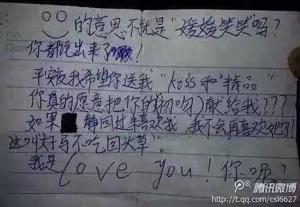 的意思不就是"嘻嘻笑笑"吗?
你都说出来了
平安夜我希望你送我"kiss和精品"
你真的愿意把你的初吻献给我???
如果 静回过来喜欢我,我不会再喜欢她了!
这叫好马不吃回头草。
我是 love you! 你呢?
腾讯微博
http://t.qq.com/csl6627